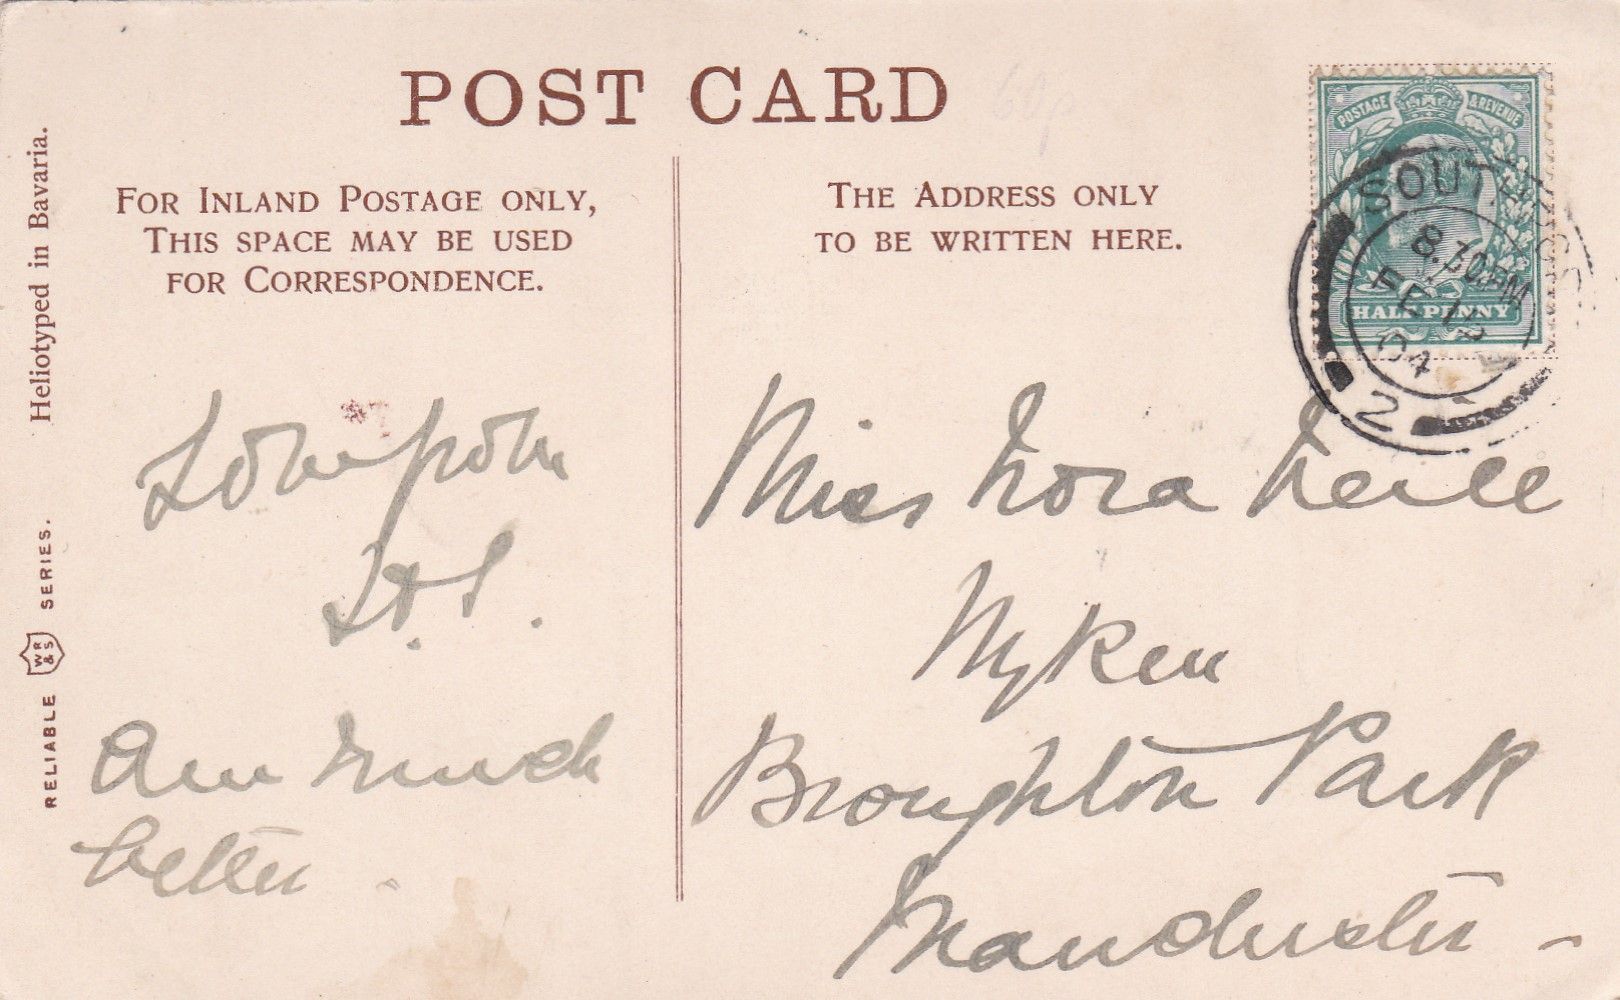 POST CARD
60p
FOR INLAND POSTAGE ONLY,
THIS SPACE MAY BE USED
FOR CORRESPONDENCE.
THE ADDRESS ONLY
TO BE WRITTEN HERE.
POSTAGE & REVENUE
HALF PENNY
8.30PM
FE 12
04
2
Heliotyped in Bavaria.
RELIABLE WR & S SERIES.
Love from
Am much
better.
Miss Nora Neill
Broughton Park
Manchester